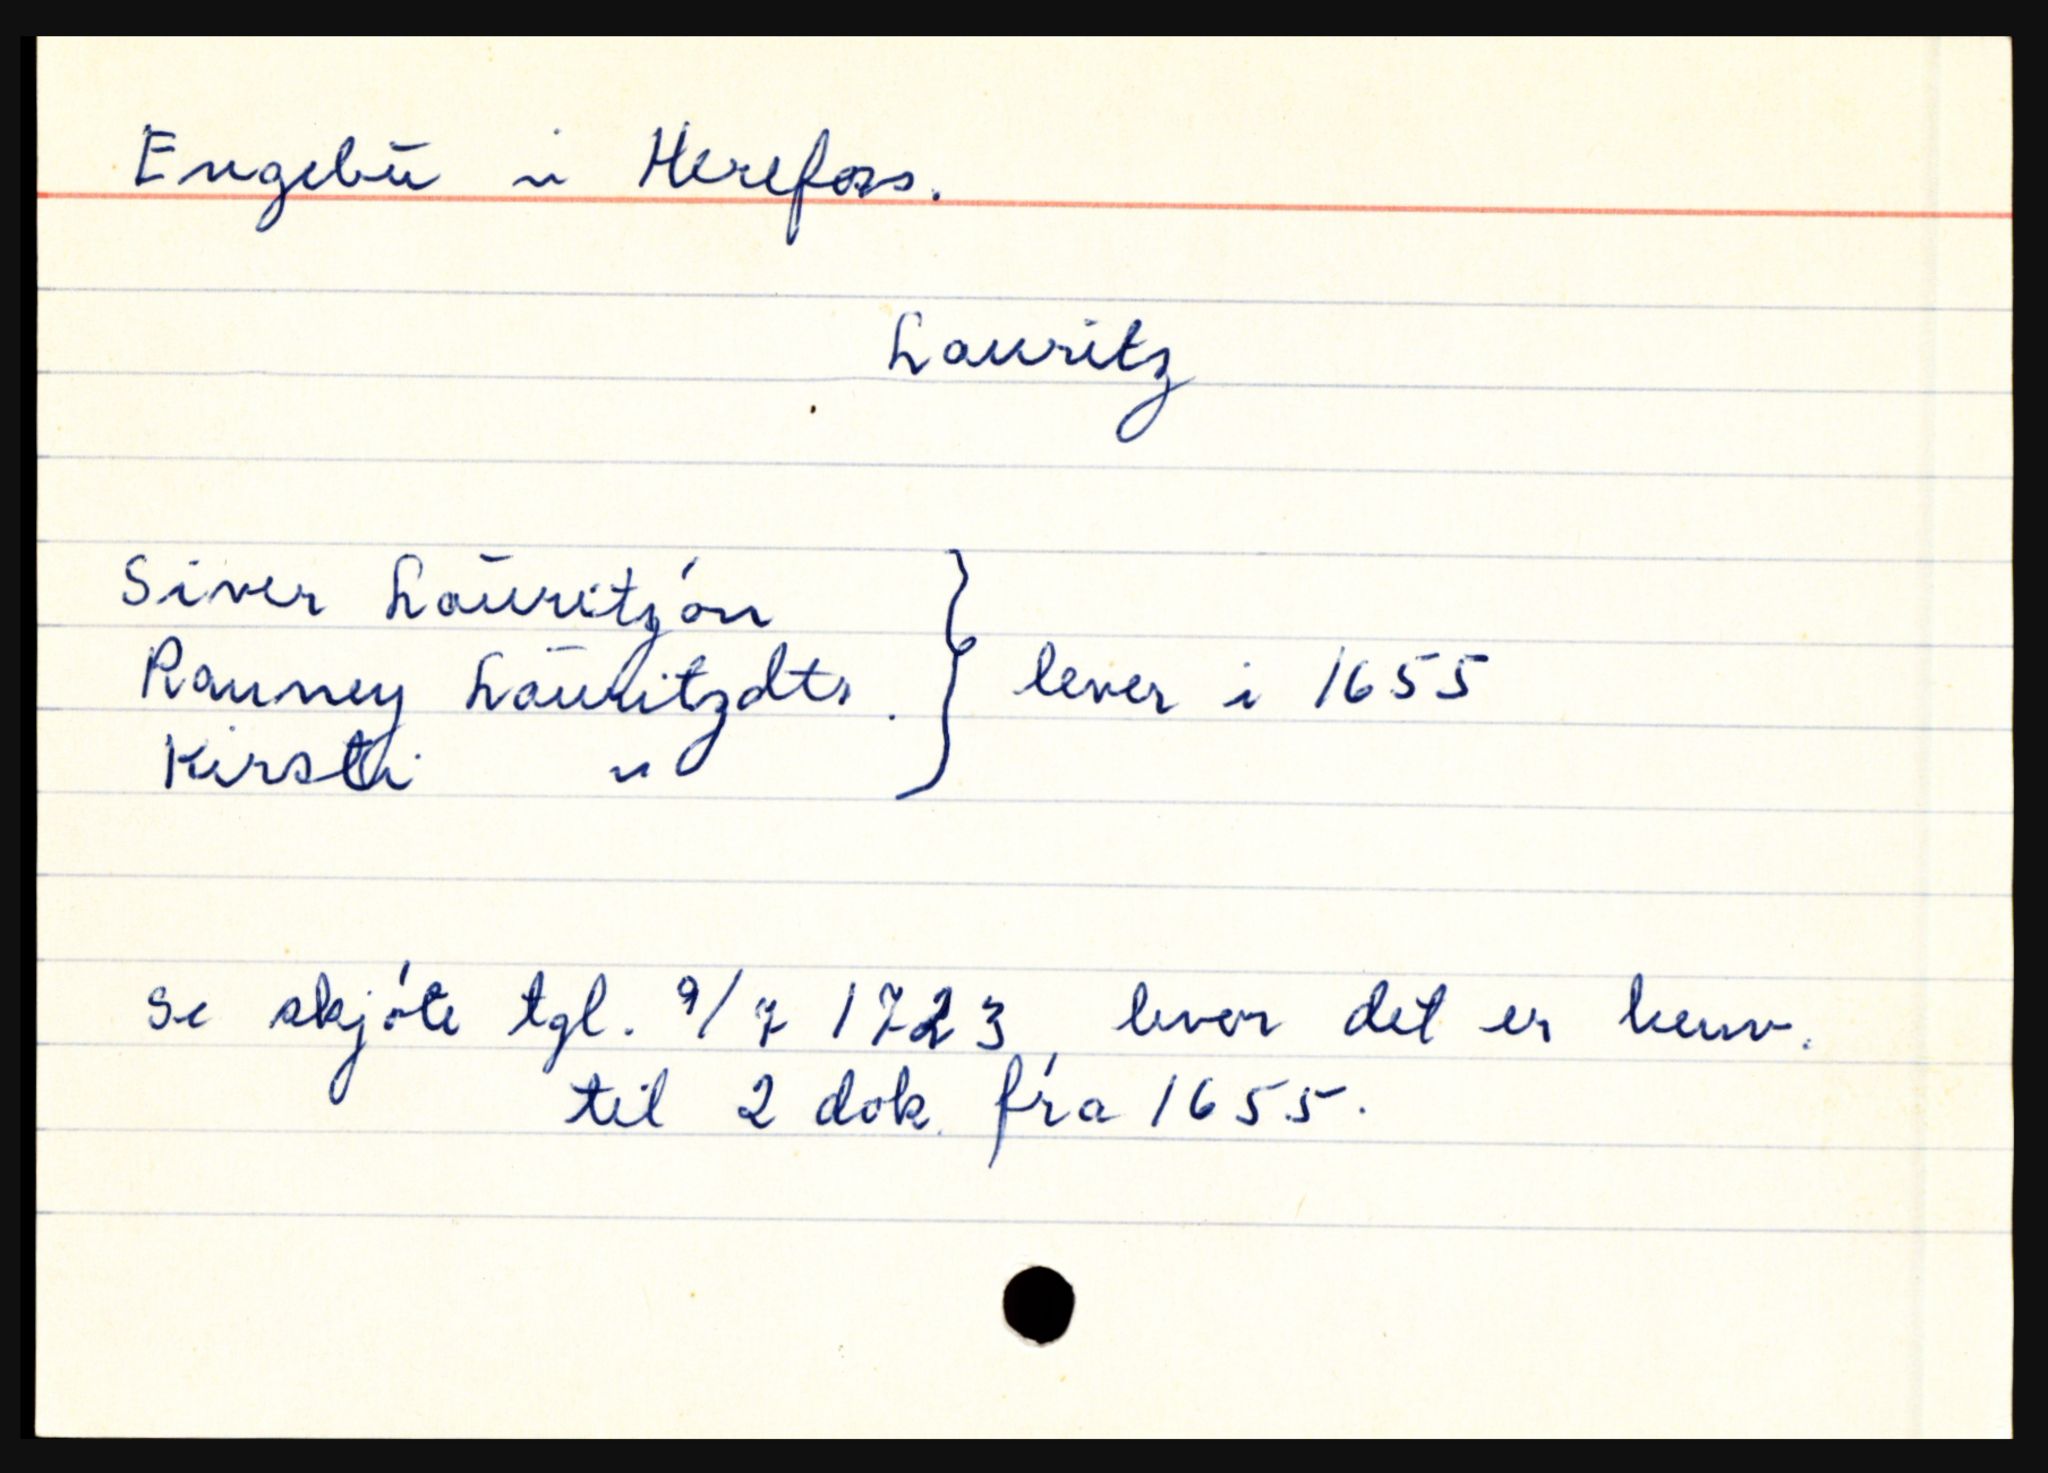 Engebu i Herefoss.
Lauritz
Siver Lauritzøn
Ranney Lauritzdtr.
Kirsti "
} lever i 1655
Se skjøte tgl. 9/7 1723 hvor det er henv.
til 2 dok. fra 1655.